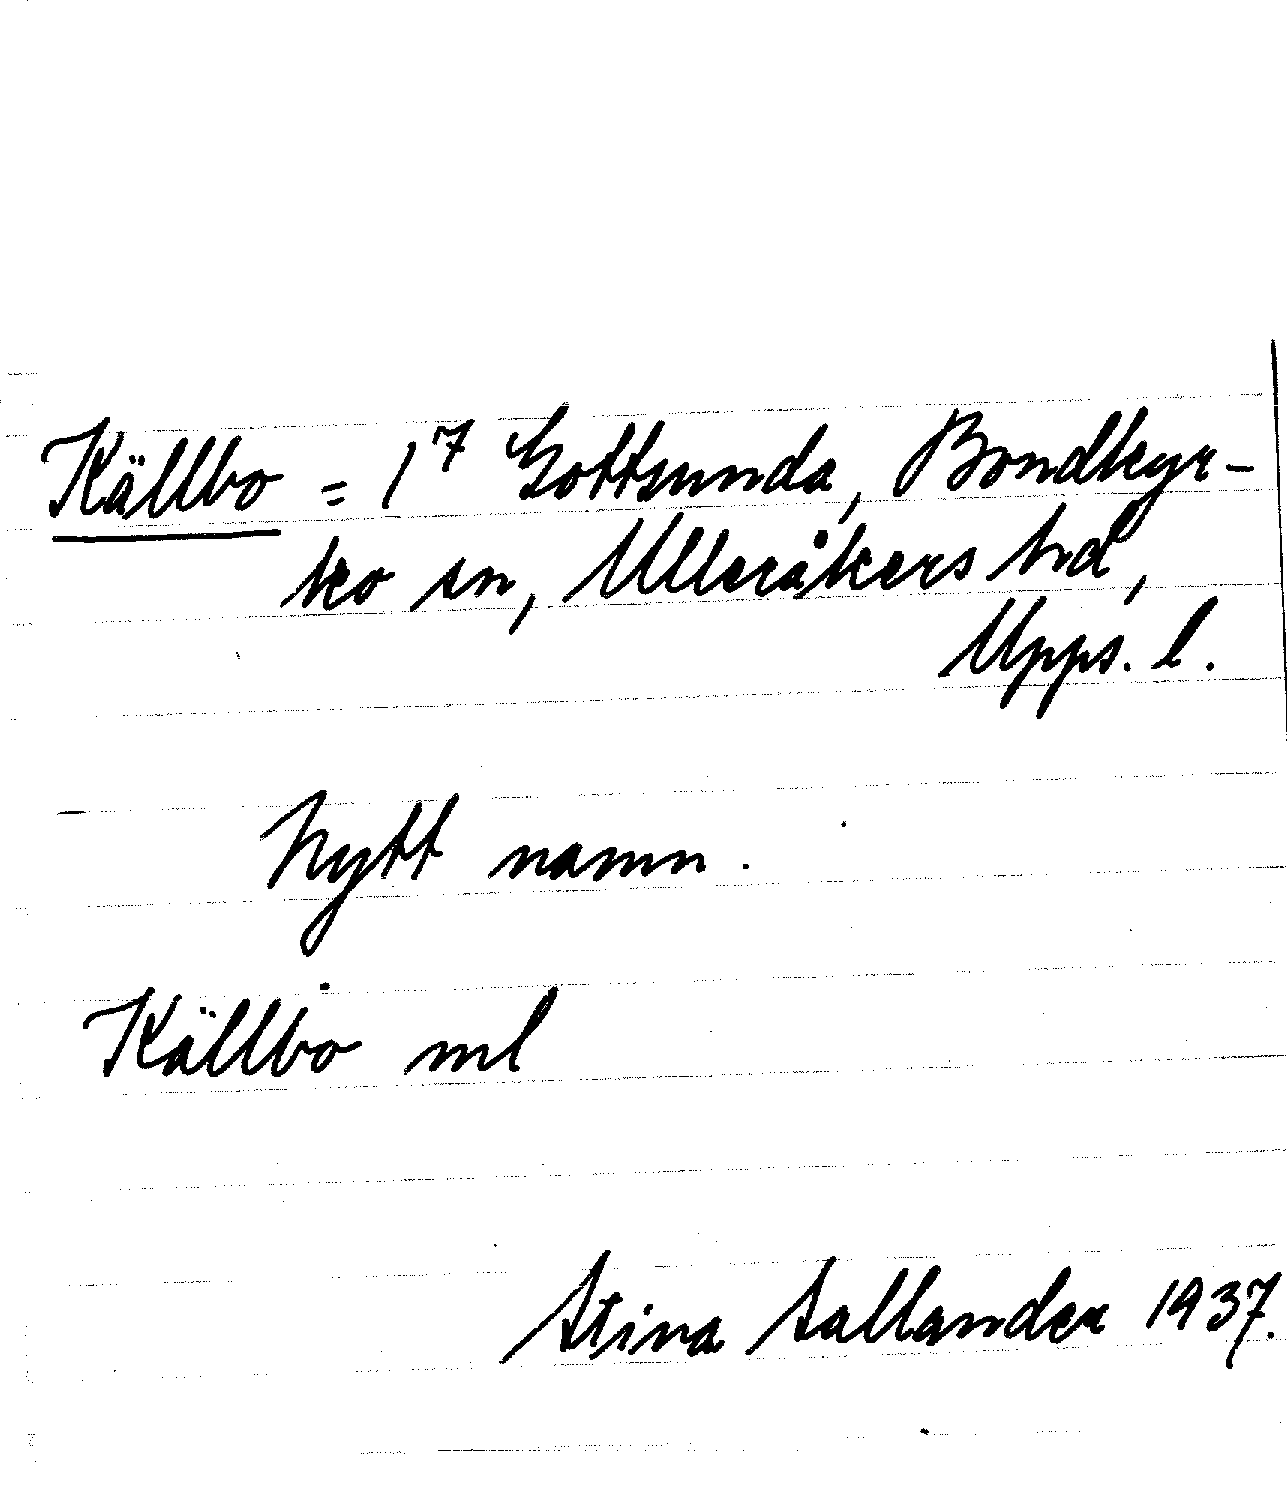 Källbo = 1⁷ Gottsunda, Bondkyr-
ko sn, Ulleråkers hd,
Upps. l.
Nytt namn.
Källbo ml
Stina Sallander 1937.